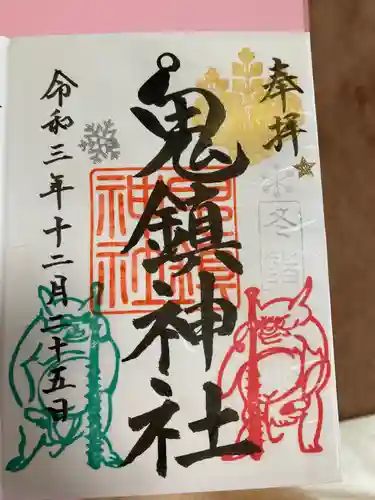 奉拝
冬
鬼鎮神社
鬼鎮
神社
令和三年十二月二十五日